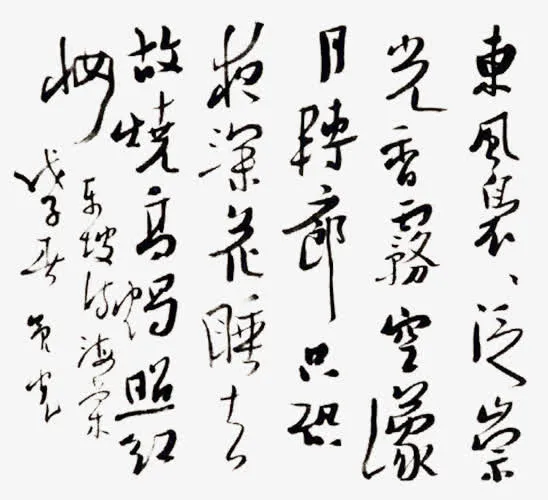 東風裊、泛崇
光香霧空濛
月轉廊只恐
夜深花睡去
故燒高燭照紅
妝
東坡詩海棠
戊子春